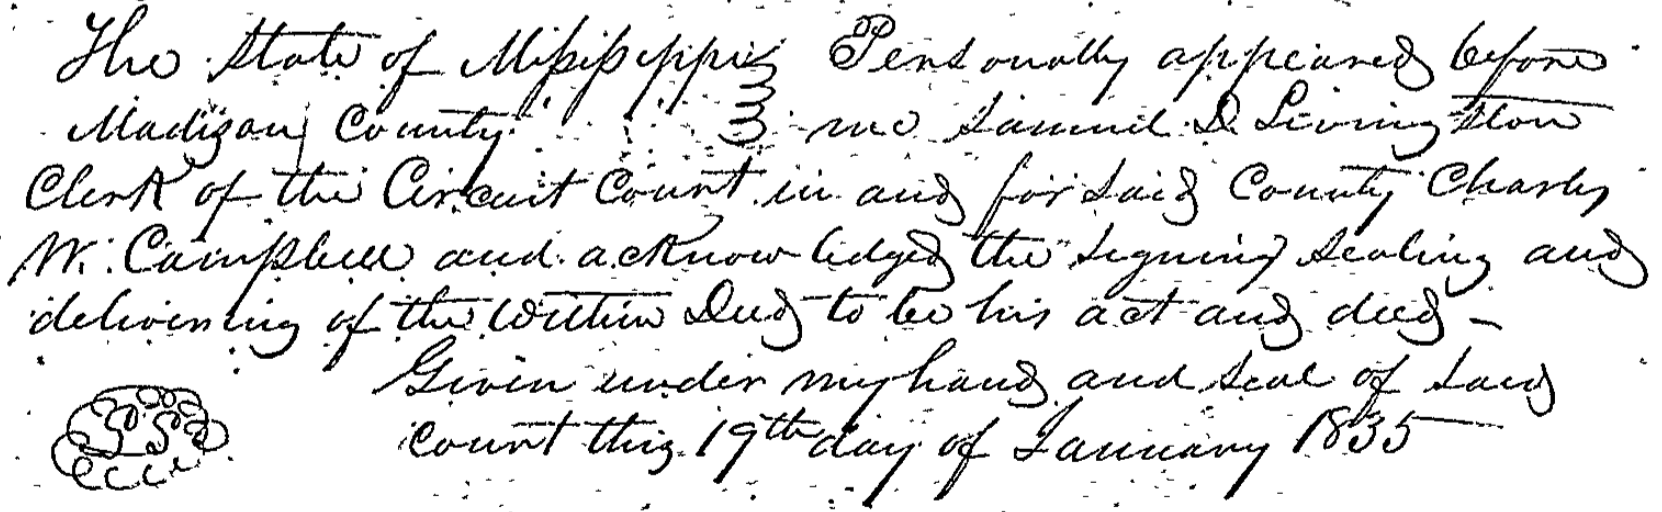 The State of Mississippi } Personally appeared before
Madison County } me Samuel D. Livingston
Clerk of the Circuit Court in and for said County Charles
W. Campbell and acknowledged the signing sealing and
delivering of the within Deed to be his act and deed –
Given under my hand and seal of said
court this 19th day of January 1835